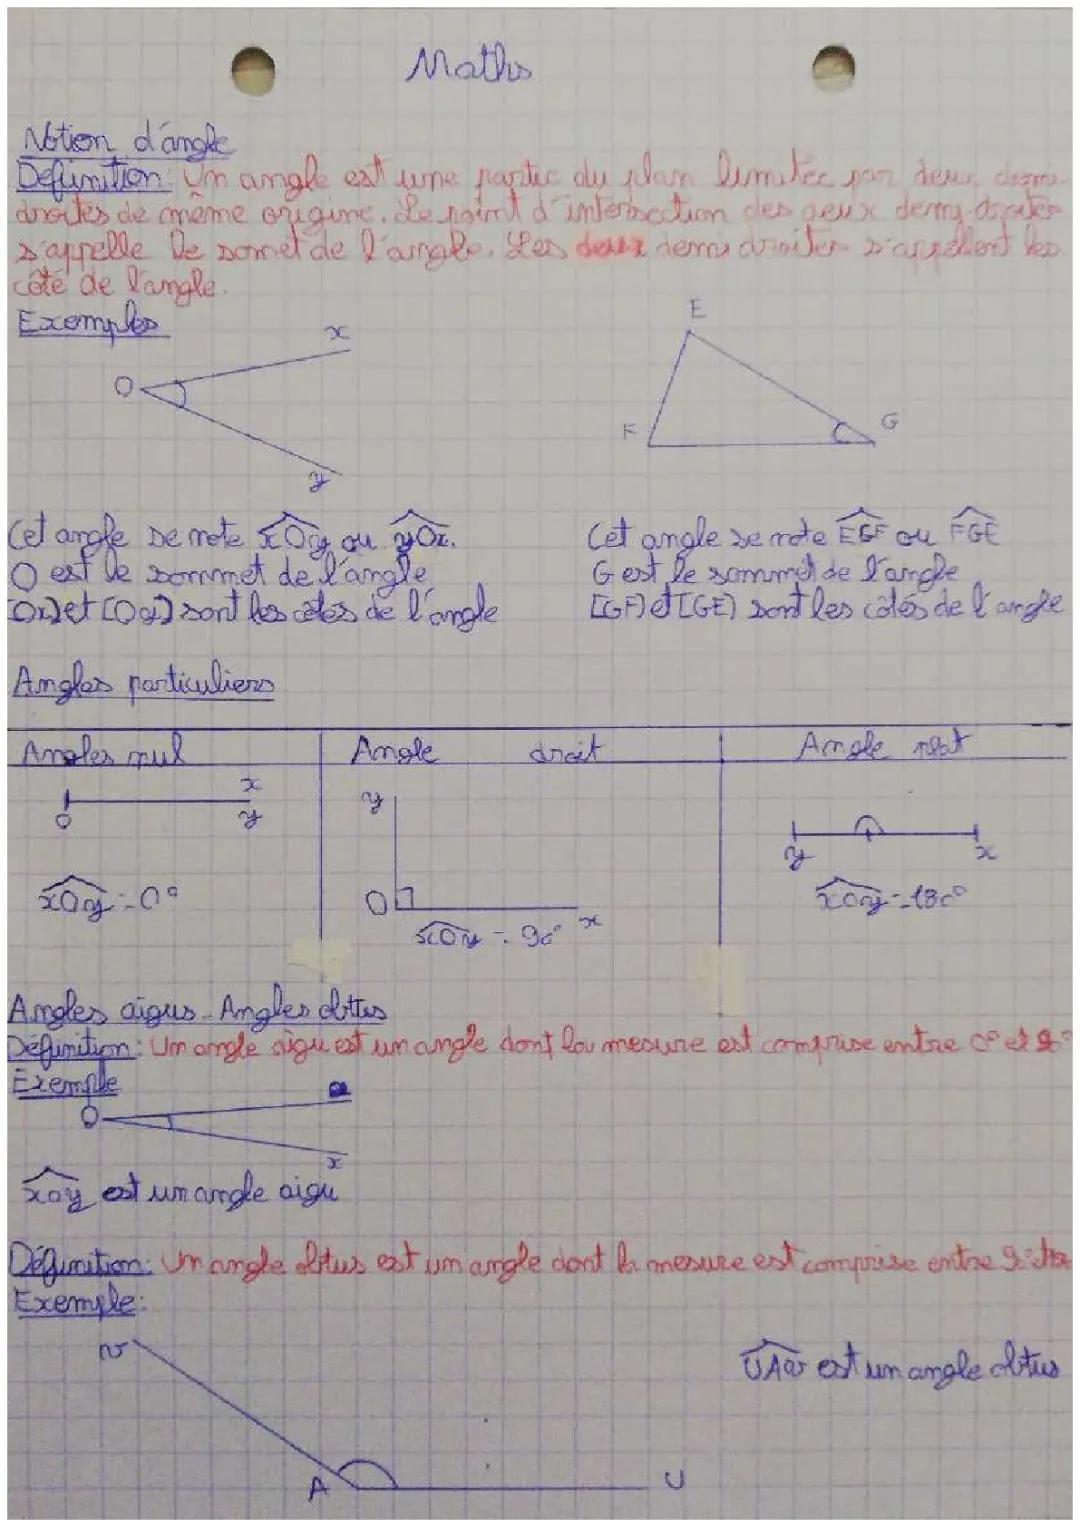 Maths
Notion d'angle
Définition: Un angle est une partie du plan limitée par deux demi-
droites de même origine. Le point d'intersection des deux demi-droites
s'appelle le somet de l'angle. Les deux demi droites s'appellent les
côté de l'angle.
Exemples
x
O
y
E
F
G
Cet angle se note xOy ou yOx.
O est le sommet de l'angle
[Ox) et [Oy) sont les côtés de l'angle
Cet angle se note EGF ou FGE
G est le sommet de l'angle
[GF) et [GE) sont les côtés de l'angle
Angles particuliers
Angles nul
Angle droit
Angle plat
x
O
y
xOy = 0°
y
O
x
xOy = 90°
y
x
xOy = 180°
Angles aigus - Angles obtus
Définition: Un angle aigu est un angle dont la mesure est comprise entre 0° et 90°
Exemple
O
x
xoy est un angle aigu
Définition: Un angle obtus est un angle dont la mesure est comprise entre
Exemple:
v
A
U
UAv est un angle obtus